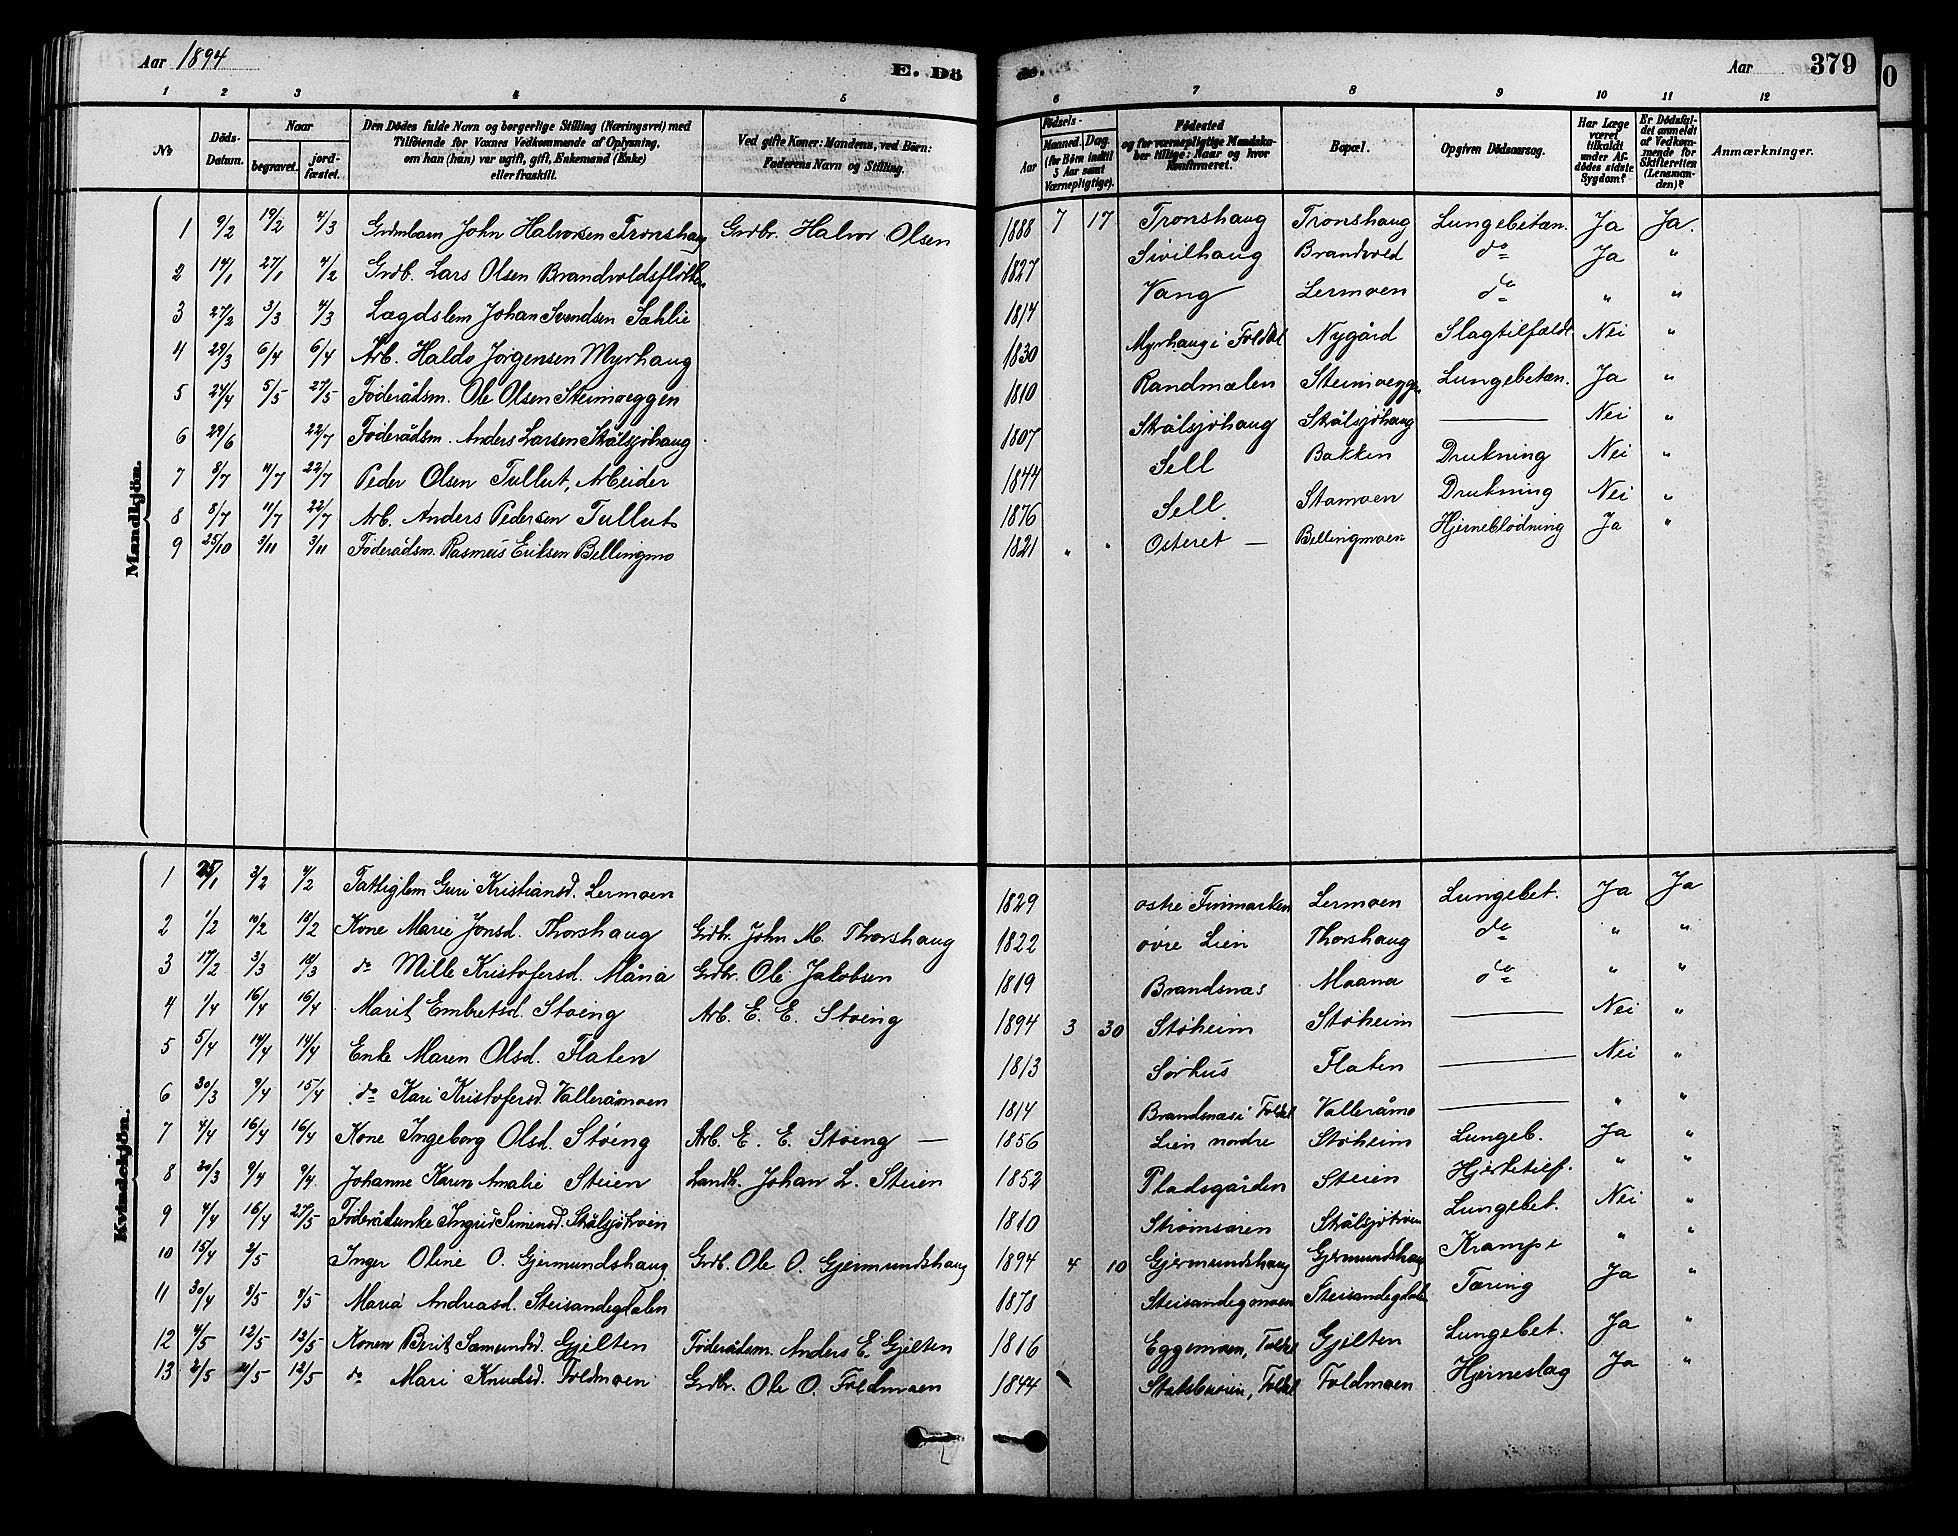 Aar 1894 E. Dö de. Aar 379
1 2 3 4 5 6 7 8 9 10 11 12
No Döds-Datum. Naar begravet. jordfæstet. Den Dödes fulde Navn og borgerlige Stilling (Næringsvei) med Tilföiende for Voxnes Vedkommende af Oplysning, om han (hun) var ugift, gift, Enkemand (Enke) eller fraskilt. Ved gifte Koner: Mandens, ved Börn: Faderens Navn og Stilling. Födsels- Aar Maaned. Dag. (for Börn indtil 5 Aar samt Værnepligtige). Födested og for værnepligtige Mandskaber tillige: Naar og hvor Konfirmeret. Bopæl. Opgiven Dödsaarsag. Har Læge været tilkaldt under Afdödes sidste Sygdom? Er Dödsfaldet anmeldt af Vedkommende for Skifteretten (Lensmanden)? Anmærkninger.
Mandkjön.
1 9/2 19/2 4/3 Grdmbarn John Halvorsen Tronshaug Grdbr. Halvor Olsen 1888 7 17 Tronshaug Tronshaug Lungebetæn. Ja Ja.
2 14/1 27/1 4/2 Grdb. Lars Olsen Brandvoldsfløtten 1827 Sivilhaug Brandvold do Ja "
3 27/2 3/3 4/3 Lægdslem Johan Svendsen Sahlie 1814 Vang Lermoen do " "
4 28/3 6/4 6/4 Arb. Haldo Jørgensen Myrhaug 1830 Myrhaug i Foldal Nygård Slagtilfældt Nei "
5 24/4 5/5 27/5 Føderådsm. Ole Olsen Steimoeggen 1810 Randmælen Steimoeggn Lungebetæn. Ja "
6 29/6 22/7 Føderådsm. Anders Larsen Stålsjøhaug 1807 Stålsjøhaug Stålsjøhaug — Nei "
7 8/7 11/7 22/7 Peder Olsen Tullut, Arbeider 1844 Sell Bakken Drukning Nei "
8 8/7 11/7 22/7 Arb. Anders Pedersen Tullut 1876 Sell Stamoen Drukning Nei "
9 25/10 3/11 3/11 Føderådsm. Rasmus Eriksen Bellingmo 1821 " " Osteret — Bellingmoen Hjerneblødning Ja "
Kvindekjön.
1 25/1 3/2 4/2 Fattiglem Guri Kristiansd. Lermoen 1829 østre Finmarken Lermoen Lungebet. Ja Ja
2 1/2 10/2 18/2 Kone Marie Jonsd. Thorshaug Grdbr. John M. Thorshaug 1822 øvre Lien Thorshaug do " "
3 17/2 3/3 18/3 do Mille Kristofersd. Måna Grdbr. Ole Jakobsen 1819 Brandsnæs Maana do " "
4 1/4 16/4 16/4 Marit Embretsd. Støeng Arb. E. E. Støeng 1894 3 30 Støheim Støheim — Nei "
5 5/4 14/4 14/4 Enke Maren Olsd. Flaten 1813 Sørhus Flaten — Nei "
6 30/3 9/4 15/4 do Kari Kristofersd. Valleråmoen 1814 Brandsnæs i Foldal Valleråmo — " "
7 4/4 16/4 16/4 Kone Ingeborg Olsd. Støeng Arb. E. E. Støeng — 1856 Lien nordre Støheim Lungeb. Ja "
8 30/3 9/4 9/4 Johanne Karen Amalie Steien Landh. Johan L. Steien 1852 Pladsgården Steien Hjertetilf. " "
9 4/4 16/4 27/5 Føderådsenke Ingrid Simensd. Stålsjøtrøen 1810 Strømsøren Stålsjøtrøen Lungebet. Nei "
10 15/4 2/5 Inger Oline O. Gjermundshaug Grdb. Ole O. Gjermundshaug 1894 4 10 Gjermundshaug Gjermundshaug Krampe " "
11 30/4 8/5 8/5 Maria Andreasd. Steisandegdalen 1878 Steisandegmoen Steisandegdalen Tæring Ja "
12 4/5 12/5 13/5 Konen Berit Samundsd. Gjelten Føderådsm. Anders E. Gjelten 1816 Eggemoen, Foldal Gjelten Lungebet. Ja "
13 2/5 12/5 do Mari Knudsd. Foldmoen Grdbr. Ole O. Foldmoen 1844 Foldmoen Hjerneslag Ja "